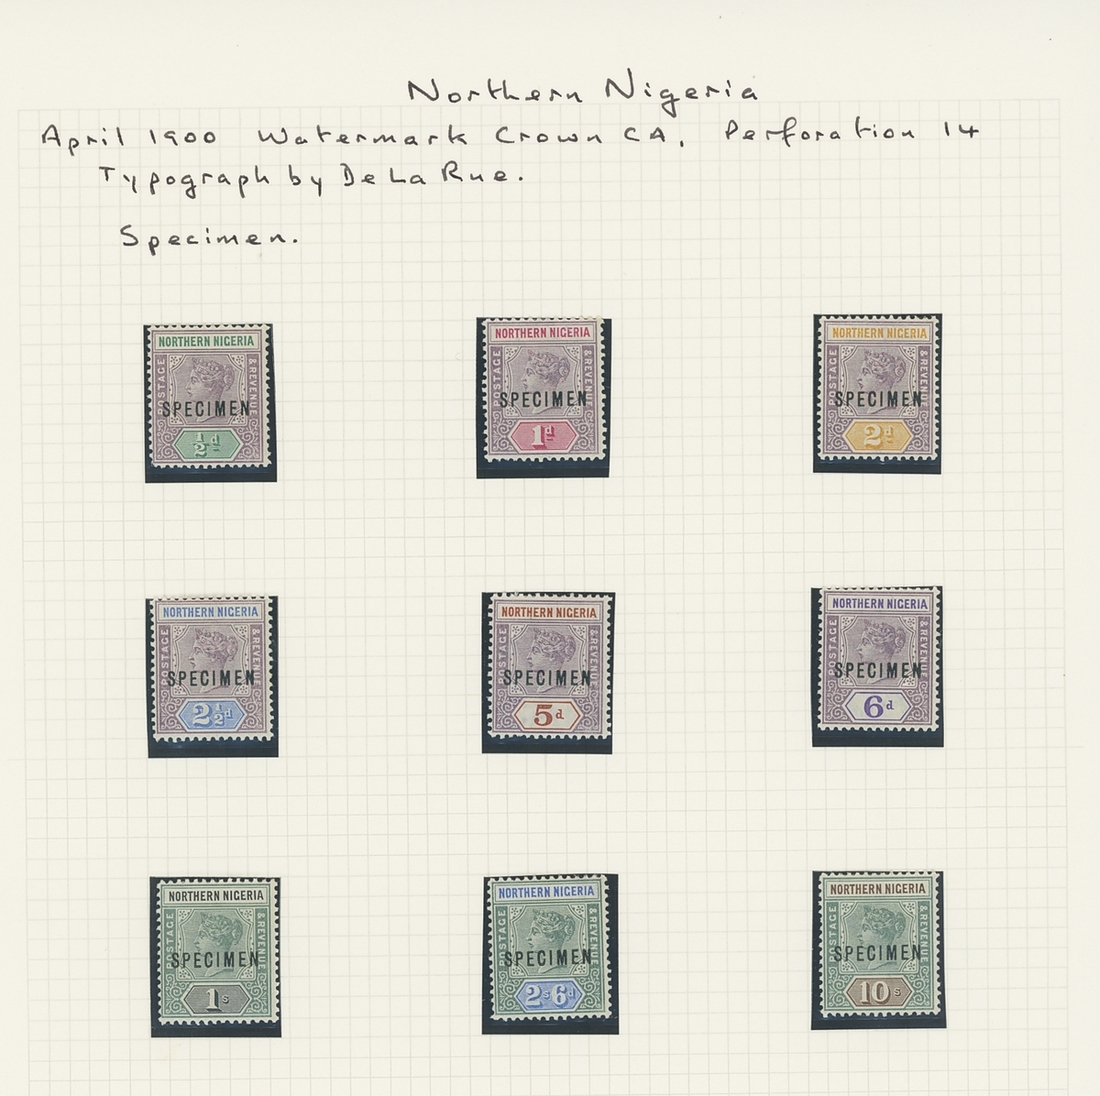 Northern Nigeria
April 1900 Watermark Crown CA, Perforation 14
Typograph by De La Rue.
Specimen.
NORTHERN NIGERIA
POSTAGE & REVENUE
SPECIMEN
½d
NORTHERN NIGERIA
POSTAGE & REVENUE
SPECIMEN
1d
NORTHERN NIGERIA
POSTAGE & REVENUE
SPECIMEN
2d
NORTHERN NIGERIA
POSTAGE & REVENUE
SPECIMEN
2½d
NORTHERN NIGERIA
POSTAGE & REVENUE
SPECIMEN
5d
NORTHERN NIGERIA
POSTAGE & REVENUE
SPECIMEN
6d
NORTHERN NIGERIA
POSTAGE & REVENUE
SPECIMEN
1s
NORTHERN NIGERIA
POSTAGE & REVENUE
SPECIMEN
2s6d
NORTHERN NIGERIA
POSTAGE & REVENUE
SPECIMEN
10s